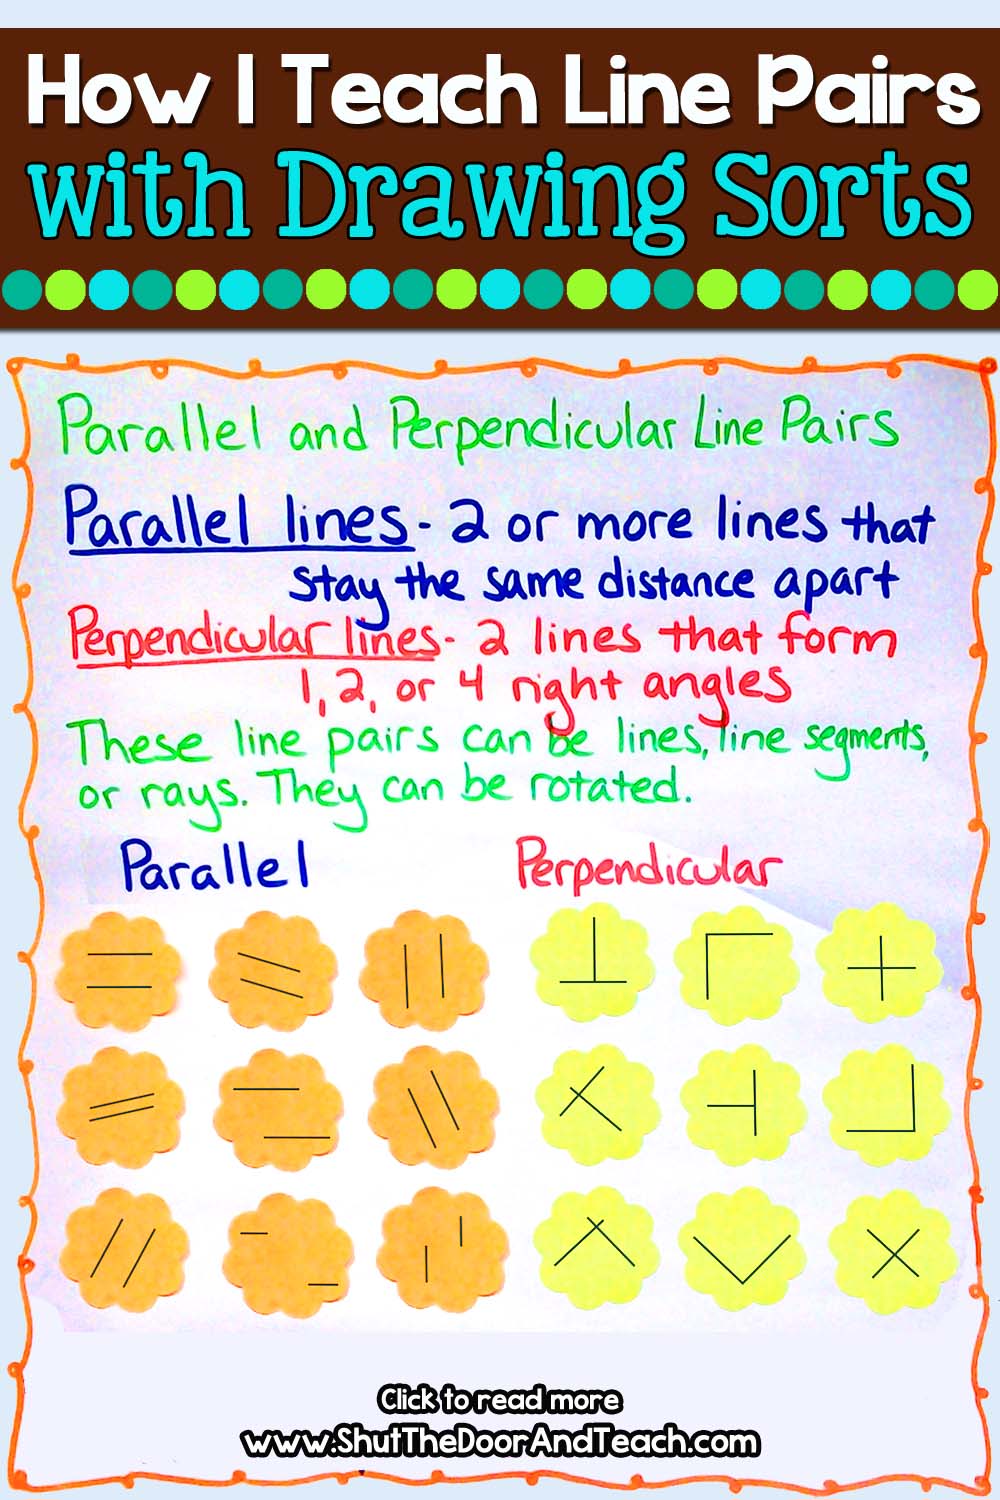 How I Teach Line Pairs
with Drawing Sorts
Parallel and Perpendicular Line Pairs
Parallel lines - 2 or more lines that
stay the same distance apart
Perpendicular lines - 2 lines that form
1, 2, or 4 right angles
These line pairs can be lines, line segments,
or rays. They can be rotated.
Parallel Perpendicular
Click to read more
www.ShutTheDoorAndTeach.com